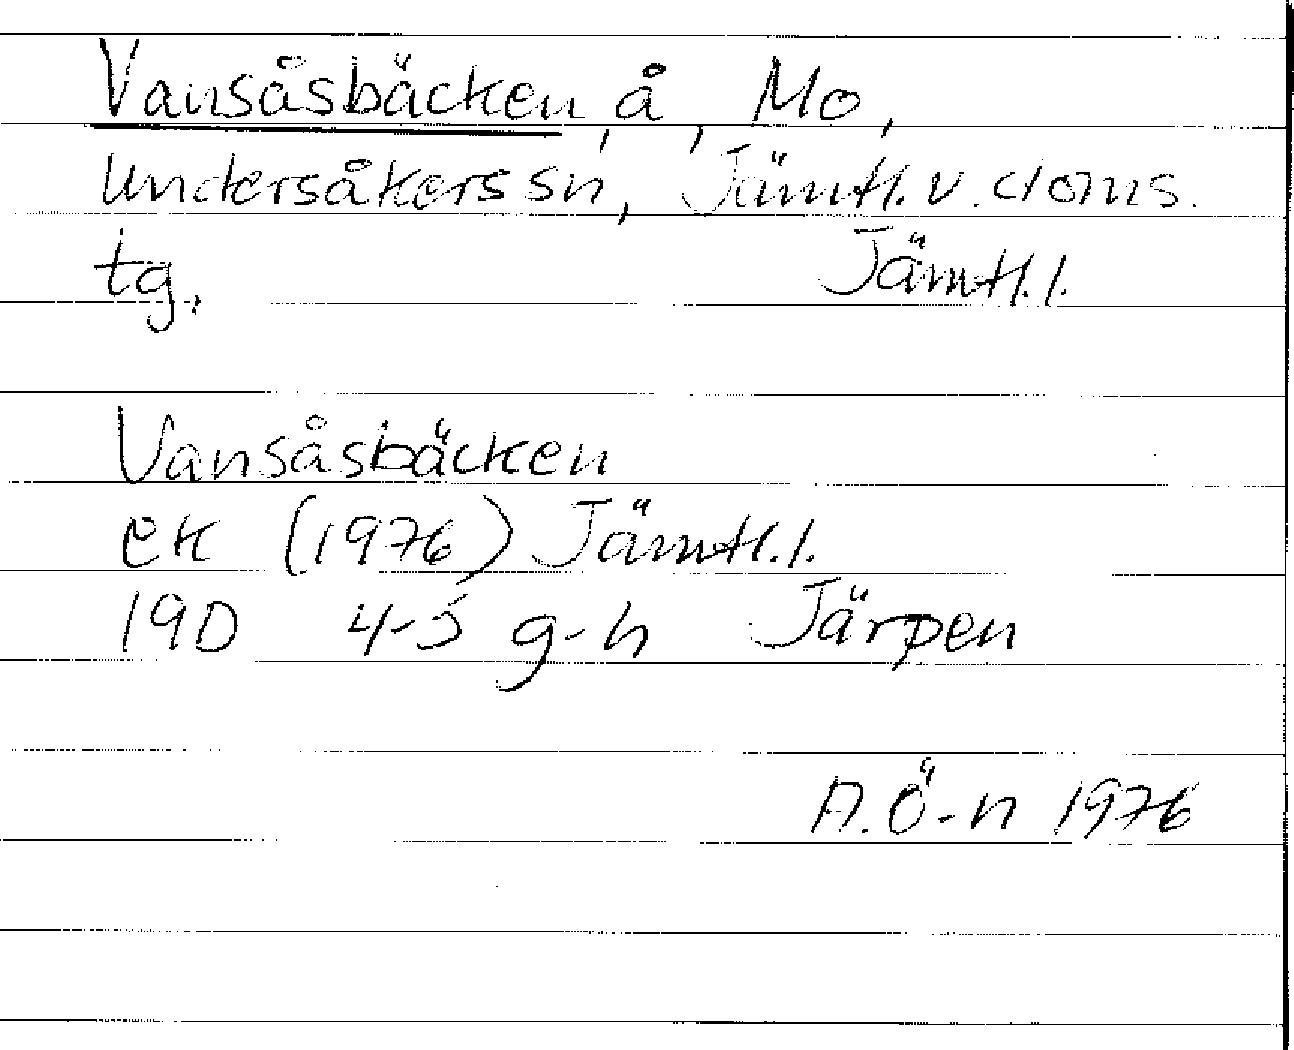 Vansåsbäcken, å, Mo,
Undersåkers sn, Jämtl. v. doms.
tg. Jämtl. l.
Vansåsbäcken
ek (1976) Jämtl. l.
19D 4-5 g-h Järpen
A. Ö-n 1976